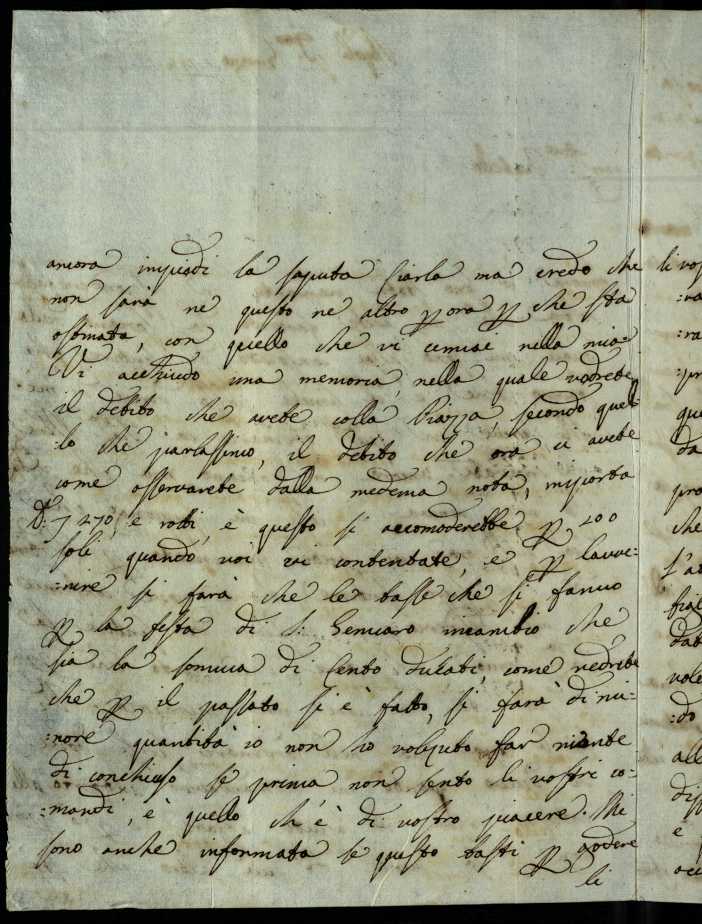 ancora impiedi la saputa Ciarla ma credo che
non sarà ne questo ne altro p ora p che sta
ostinata, con quello che vi cennai nella mia
Vi acchiudo una memoria, nella quale vedrete
il debito che avete colla Piazza, secondo quel
:lo che parlassimo, il debito che ora ci avete
come osservarete dalla medema nota, importa
D. 270, e rotti, è questo si accomoderebbe p 200
soli quando voi vi contentate, e p lavve:
:nire si farà che le tasse che si fanno
p la festa di S: Gennaro incambio che
sia la somma di Cento ducati, come vedrete
che p il passato si è fatto, si farà di mi:
:nore quantità io non ho voluto far niente
di conchiuso se prima non sento li vostri co:
:mandi, è quello ch'è di vostro piacere. Mi
sono anche informata se questo basti p godere
li